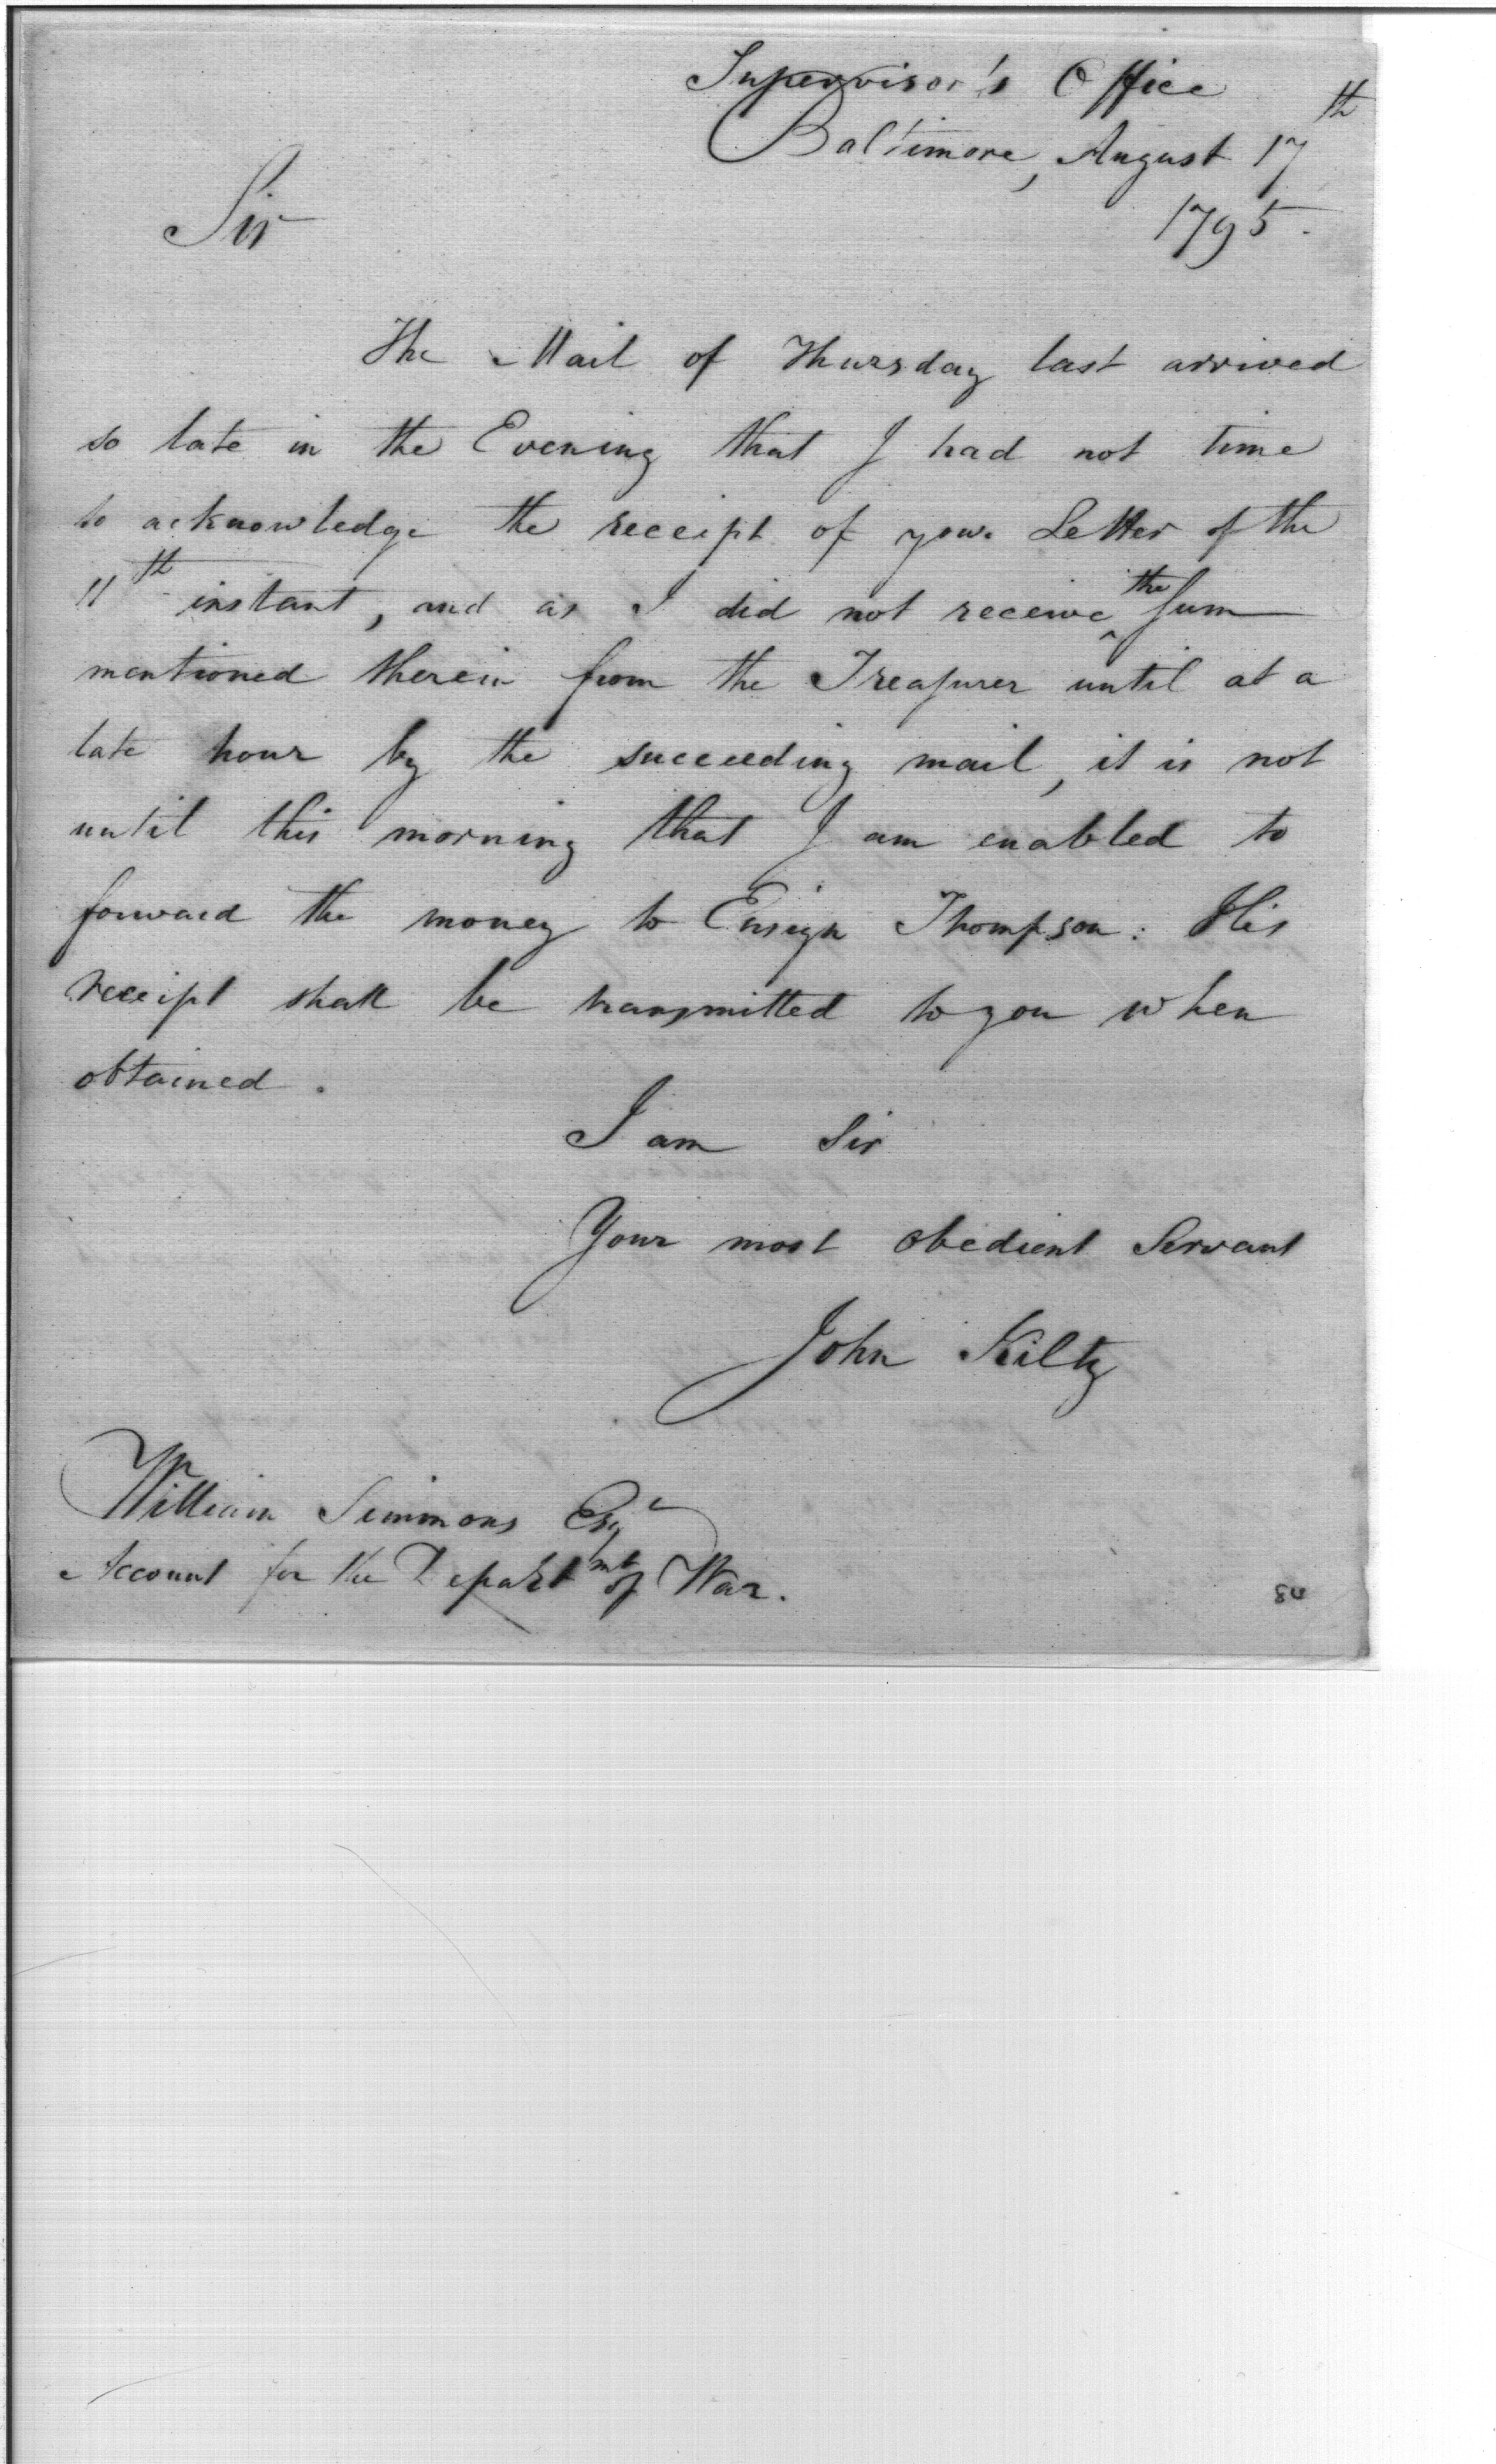 Supervisor's Office
Baltimore, August 17th
1795.
Sir
The Mail of Thursday last arrived
so late in the Evening that I had not time
to acknowledge the receipt of your Letter of the
11th instant, and as I did not receive ^the Sum
mentioned therein from the Treasurer until at a
late hour by the succeeding mail, it is not
until this morning that I am enabled to
forward the money to Ensign Thompson: His
receipt shall be transmitted to you when
obtained.
I am Sir
Your most obedient Servant
John Kilty
William Simmons Esqr
Account for the Departmt of War.